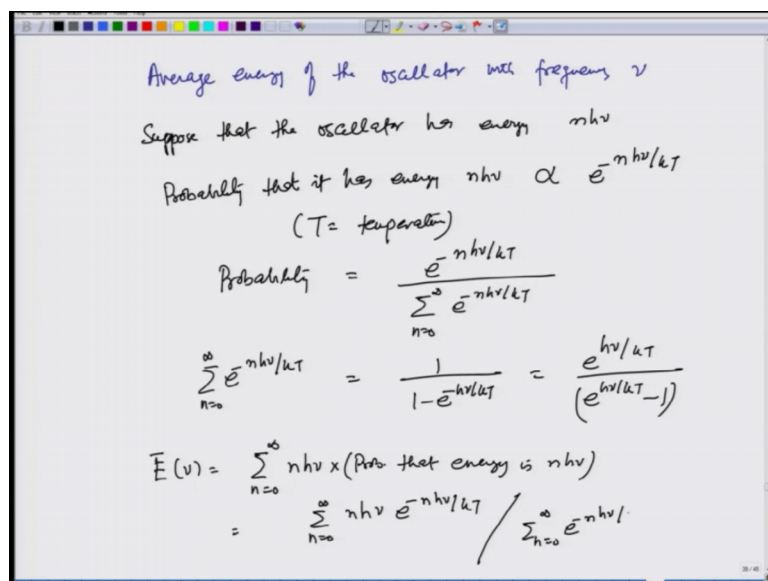 Average energy of the oscillator with frequency ν
Suppose that the oscillator has energy nhν
Probability that it has energy nhν ∝ e^{-nhν/kT}
(T = temperature)
Probability = e^{-nhν/kT} / ∑_{n=0}^{∞} e^{-nhν/kT}
∑_{n=0}^{∞} e^{-nhν/kT} = 1 / (1 - e^{-hν/kT}) = e^{hν/kT} / (e^{hν/kT} - 1)
Ē(ν) = ∑_{n=0}^{∞} nhν × (Prob. that energy is nhν)
= ∑_{n=0}^{∞} nhν e^{-nhν/kT} / ∑_{n=0}^{∞} e^{-nhν/